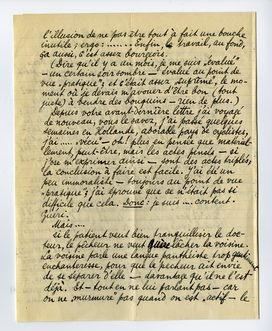 l'illusion de ne pas être tout à fait une bouche
inutile; ergo: ....... Enfin, le travail, au fond,
ça aussi, c'est assez bourgeois.
(Dire qu'il y a un mois, je me suis "évalué"
— un certain soir sombre — évalué au point de
vue "pratique"; et c'était assez suprême, le mo-
ment où je devais m'avouer d'être bon (tout
juste) à vendre des bouquins — rien de plus.)
Depuis votre avant-dernière lettre j'ai voyagé
de nouveau, vous le savez. J'ai passé quelques
semaines en Hollande, adorable pays de cyclistes,
j'ai ..... vécu — oh! plus en pensée que matériel-
lement peut-être, mais les actes pensés — si je
peux m'exprimer ainsi — sont des actes triplés,
la conclusion à faire est facile. J'ai été un
peu immoraliste — toujours au point de vue
"pratique"; j'ai éprouvé que ce n'était pas si
difficile que cela. Donc: je suis .... content.
Guéri.
Mais ....
si le patient veut bien tranquilliser le doc-
teur, le pécheur ne veut lâcher la voisine.
La voisine parle une langue panthéiste trop
enchanteresse, pour que le pécheur ait envie
de se séparer d'elle — davantage qu'il ne l'est
déjà. Et — tout en ne lui parlant pas — car
on ne murmure pas quand on est actif — le